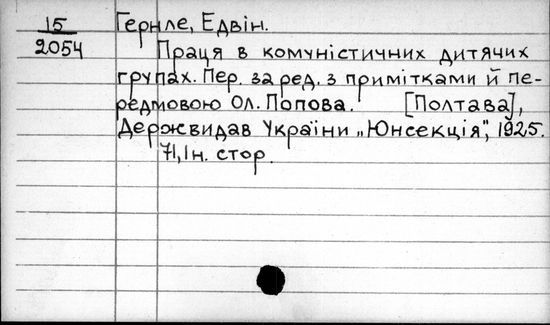 15
2054
Гернле, Едвін.
Праця в комуністичних дитячих
групах. Пер. за ред. з примітками й пе-
редмовою Ол. Попова. [Полтава],
Держвидав України „Юнсекція", 1925.
71, Ін. стор.